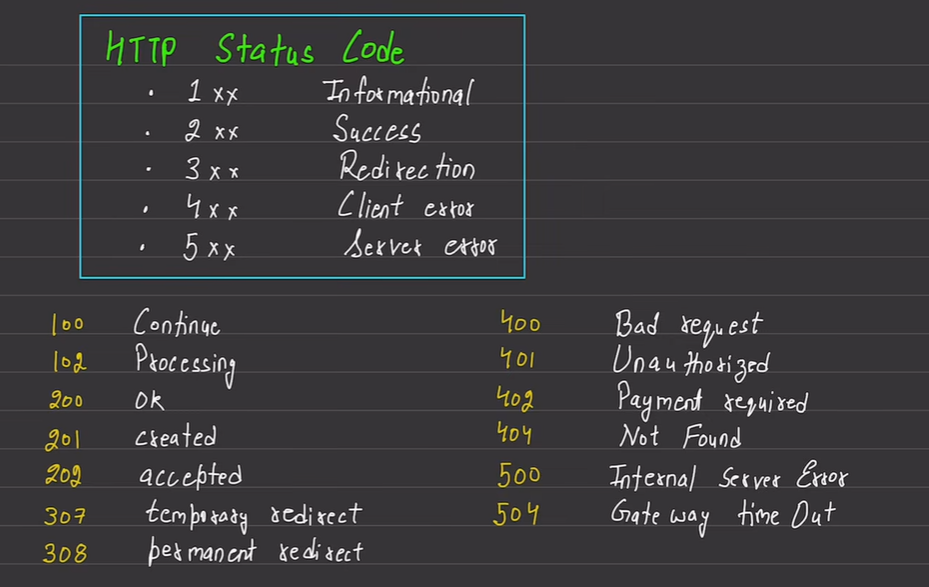 HTTP Status Code
• 1xx Informational
• 2xx Success
• 3xx Redirection
• 4xx Client error
• 5xx Server error
100 Continue
102 Processing
200 Ok
201 created
202 accepted
307 temporary redirect
308 permanent redirect
400 Bad request
401 Unauthorized
402 Payment required
404 Not Found
500 Internal Server Error
504 Gateway time Out